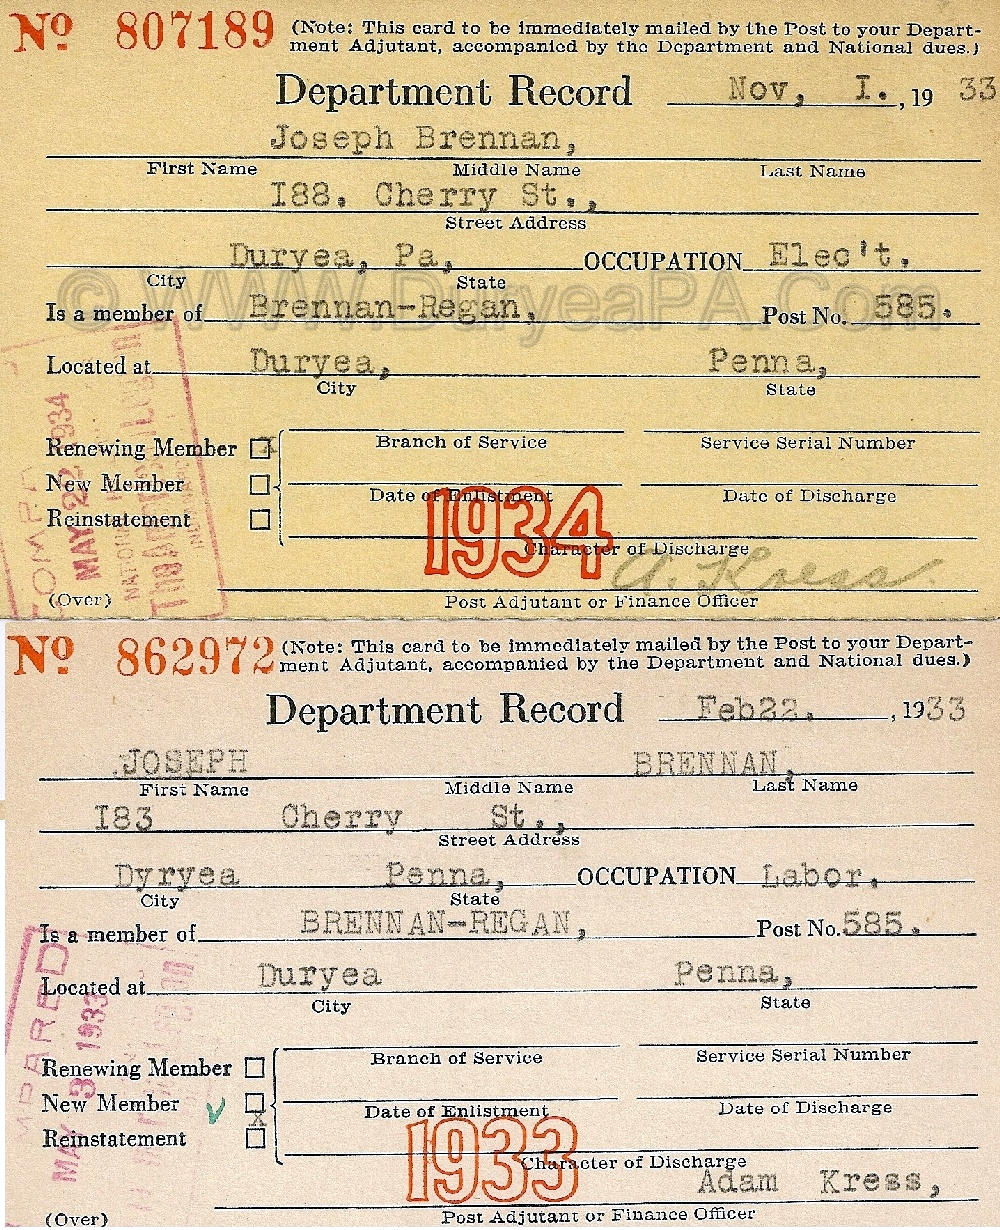 No 807189 (Note: This card to be immediately mailed by the Post to your Depart-
ment Adjutant, accompanied by the Department and National dues.)
Department Record Nov, I. , 19 33
Joseph Brennan,
First Name Middle Name Last Name
I88. Cherry St.,
Street Address
Duryea, Pa, OCCUPATION Elec't.
City State
© WWW.DuryeaPA.Com
Is a member of Brennan-Regan, Post No. 585.
Located at Duryea, Penna,
City State
Renewing Member X
Branch of Service Service Serial Number
New Member
Date of Enlistment Date of Discharge
Reinstatement
1934
Character of Discharge
A. Kress.
(Over) Post Adjutant or Finance Officer
MAY 22 1934
No 862972 (Note: This card to be immediately mailed by the Post to your Depart-
ment Adjutant, accompanied by the Department and National dues.)
Department Record Feb22. , 1933
JOSEPH BRENNAN,
First Name Middle Name Last Name
I83 Cherry St.,
Street Address
Dyryea Penna, OCCUPATION Labor.
City State
Is a member of BRENNAN-REGAN, Post No. 585.
Located at Duryea Penna,
City State
Renewing Member
Branch of Service Service Serial Number
New Member X
Date of Enlistment Date of Discharge
Reinstatement
1933
Character of Discharge
Adam Kress,
(Over) Post Adjutant or Finance Officer
MAY 3 1933